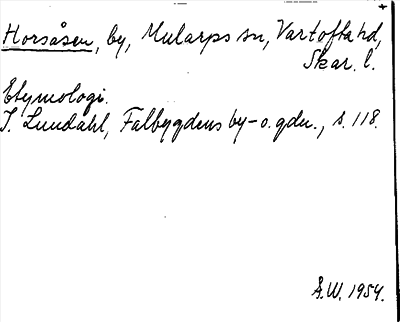 Horsåsen, by, Mularps sn, Vartofta hd,
Skar. l.
Etymologi.
I. Lundahl, Falbygdens by- o. gdn., s. 118.
Å.W. 1954.